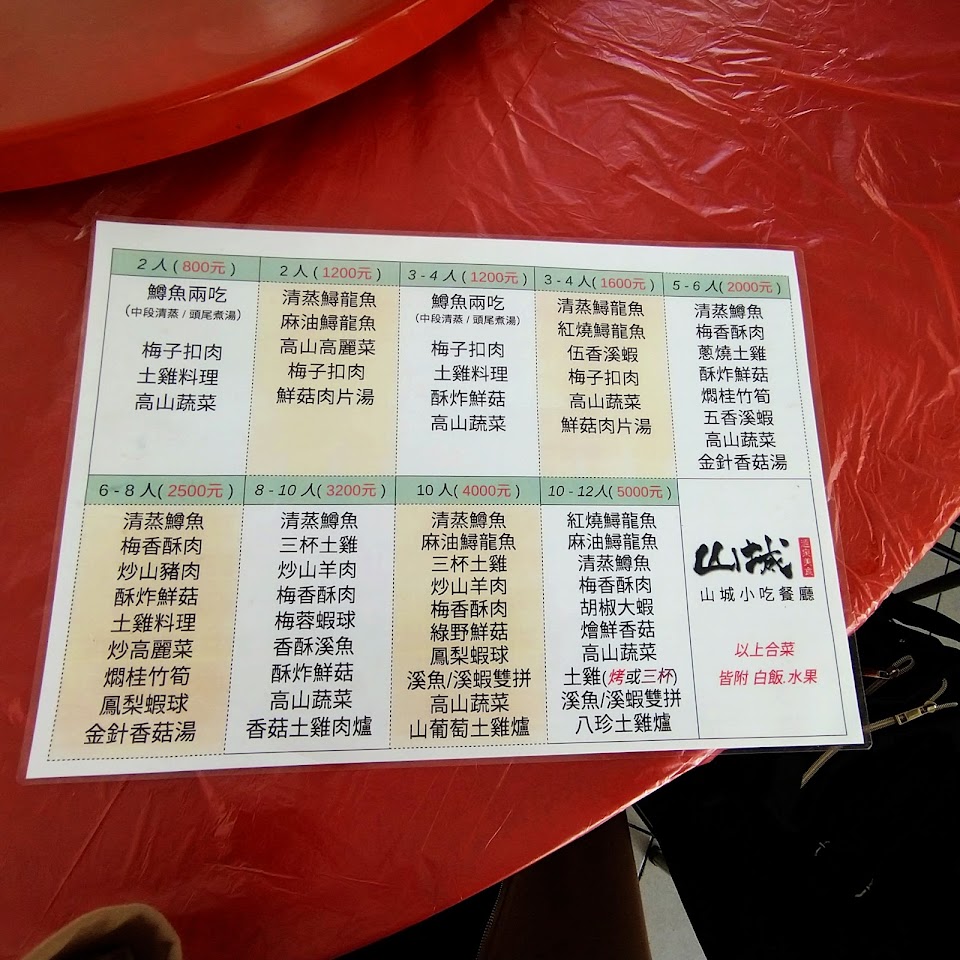 2 人 ( 800元 )
鱒魚兩吃
(中段清蒸 / 頭尾煮湯)
梅子扣肉
土雞料理
高山蔬菜
2 人 ( 1200元 )
清蒸鱘龍魚
麻油鱘龍魚
高山高麗菜
梅子扣肉
鮮菇肉片湯
3 - 4 人 ( 1200元 )
鱒魚兩吃
(中段清蒸 / 頭尾煮湯)
梅子扣肉
土雞料理
酥炸鮮菇
高山蔬菜
3 - 4 人 ( 1600元 )
清蒸鱘龍魚
紅燒鱘龍魚
伍香溪蝦
梅子扣肉
高山蔬菜
鮮菇肉片湯
5 - 6 人 ( 2000元 )
清蒸鱒魚
梅香酥肉
蔥燒土雞
酥炸鮮菇
燜桂竹筍
五香溪蝦
高山蔬菜
金針香菇湯
6 - 8 人 ( 2500元 )
清蒸鱒魚
梅香酥肉
炒山豬肉
酥炸鮮菇
土雞料理
炒高麗菜
燜桂竹筍
鳳梨蝦球
金針香菇湯
8 - 10 人 ( 3200元 )
清蒸鱒魚
三杯土雞
炒山羊肉
梅香酥肉
梅蓉蝦球
香酥溪魚
酥炸鮮菇
高山蔬菜
香菇土雞肉爐
10 人( 4000元 )
清蒸鱒魚
麻油鱘龍魚
三杯土雞
炒山羊肉
梅香酥肉
綠野鮮菇
鳳梨蝦球
溪魚/溪蝦雙拼
高山蔬菜
山葡萄土雞爐
10 - 12人( 5000元 )
紅燒鱘龍魚
麻油鱘龍魚
清蒸鱒魚
梅香酥肉
胡椒大蝦
燴鮮香菇
高山蔬菜
土雞(烤或三杯)
溪魚/溪蝦雙拼
八珍土雞爐
山城
山城小吃餐廳
以上合菜
皆附 白飯.水果